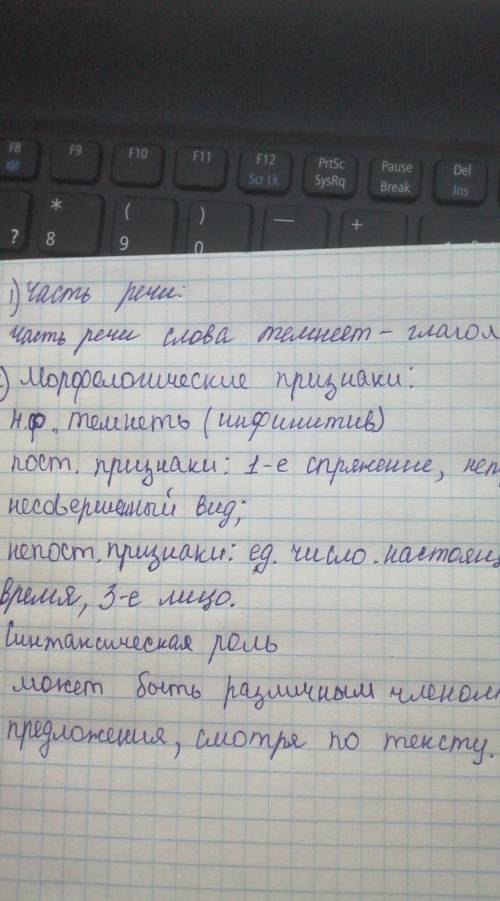 F8 F9 F10 F11 F12 PrtSc Pause Del
Scr Lk SysRq Break Ins
* ( ) — +
? 8 9 0
1) Часть речи:
часть речи слова темнеет – глагол
) Морфологические признаки:
н.ф. темнеть (инфинитив)
пост. признаки: 1-е спряжение, неп
несовершенный вид;
непост. признаки: ед. число. настоящ
время, 3-е лицо.
Синтаксическая роль
может быть различным членом
предложения, смотря по тексту.